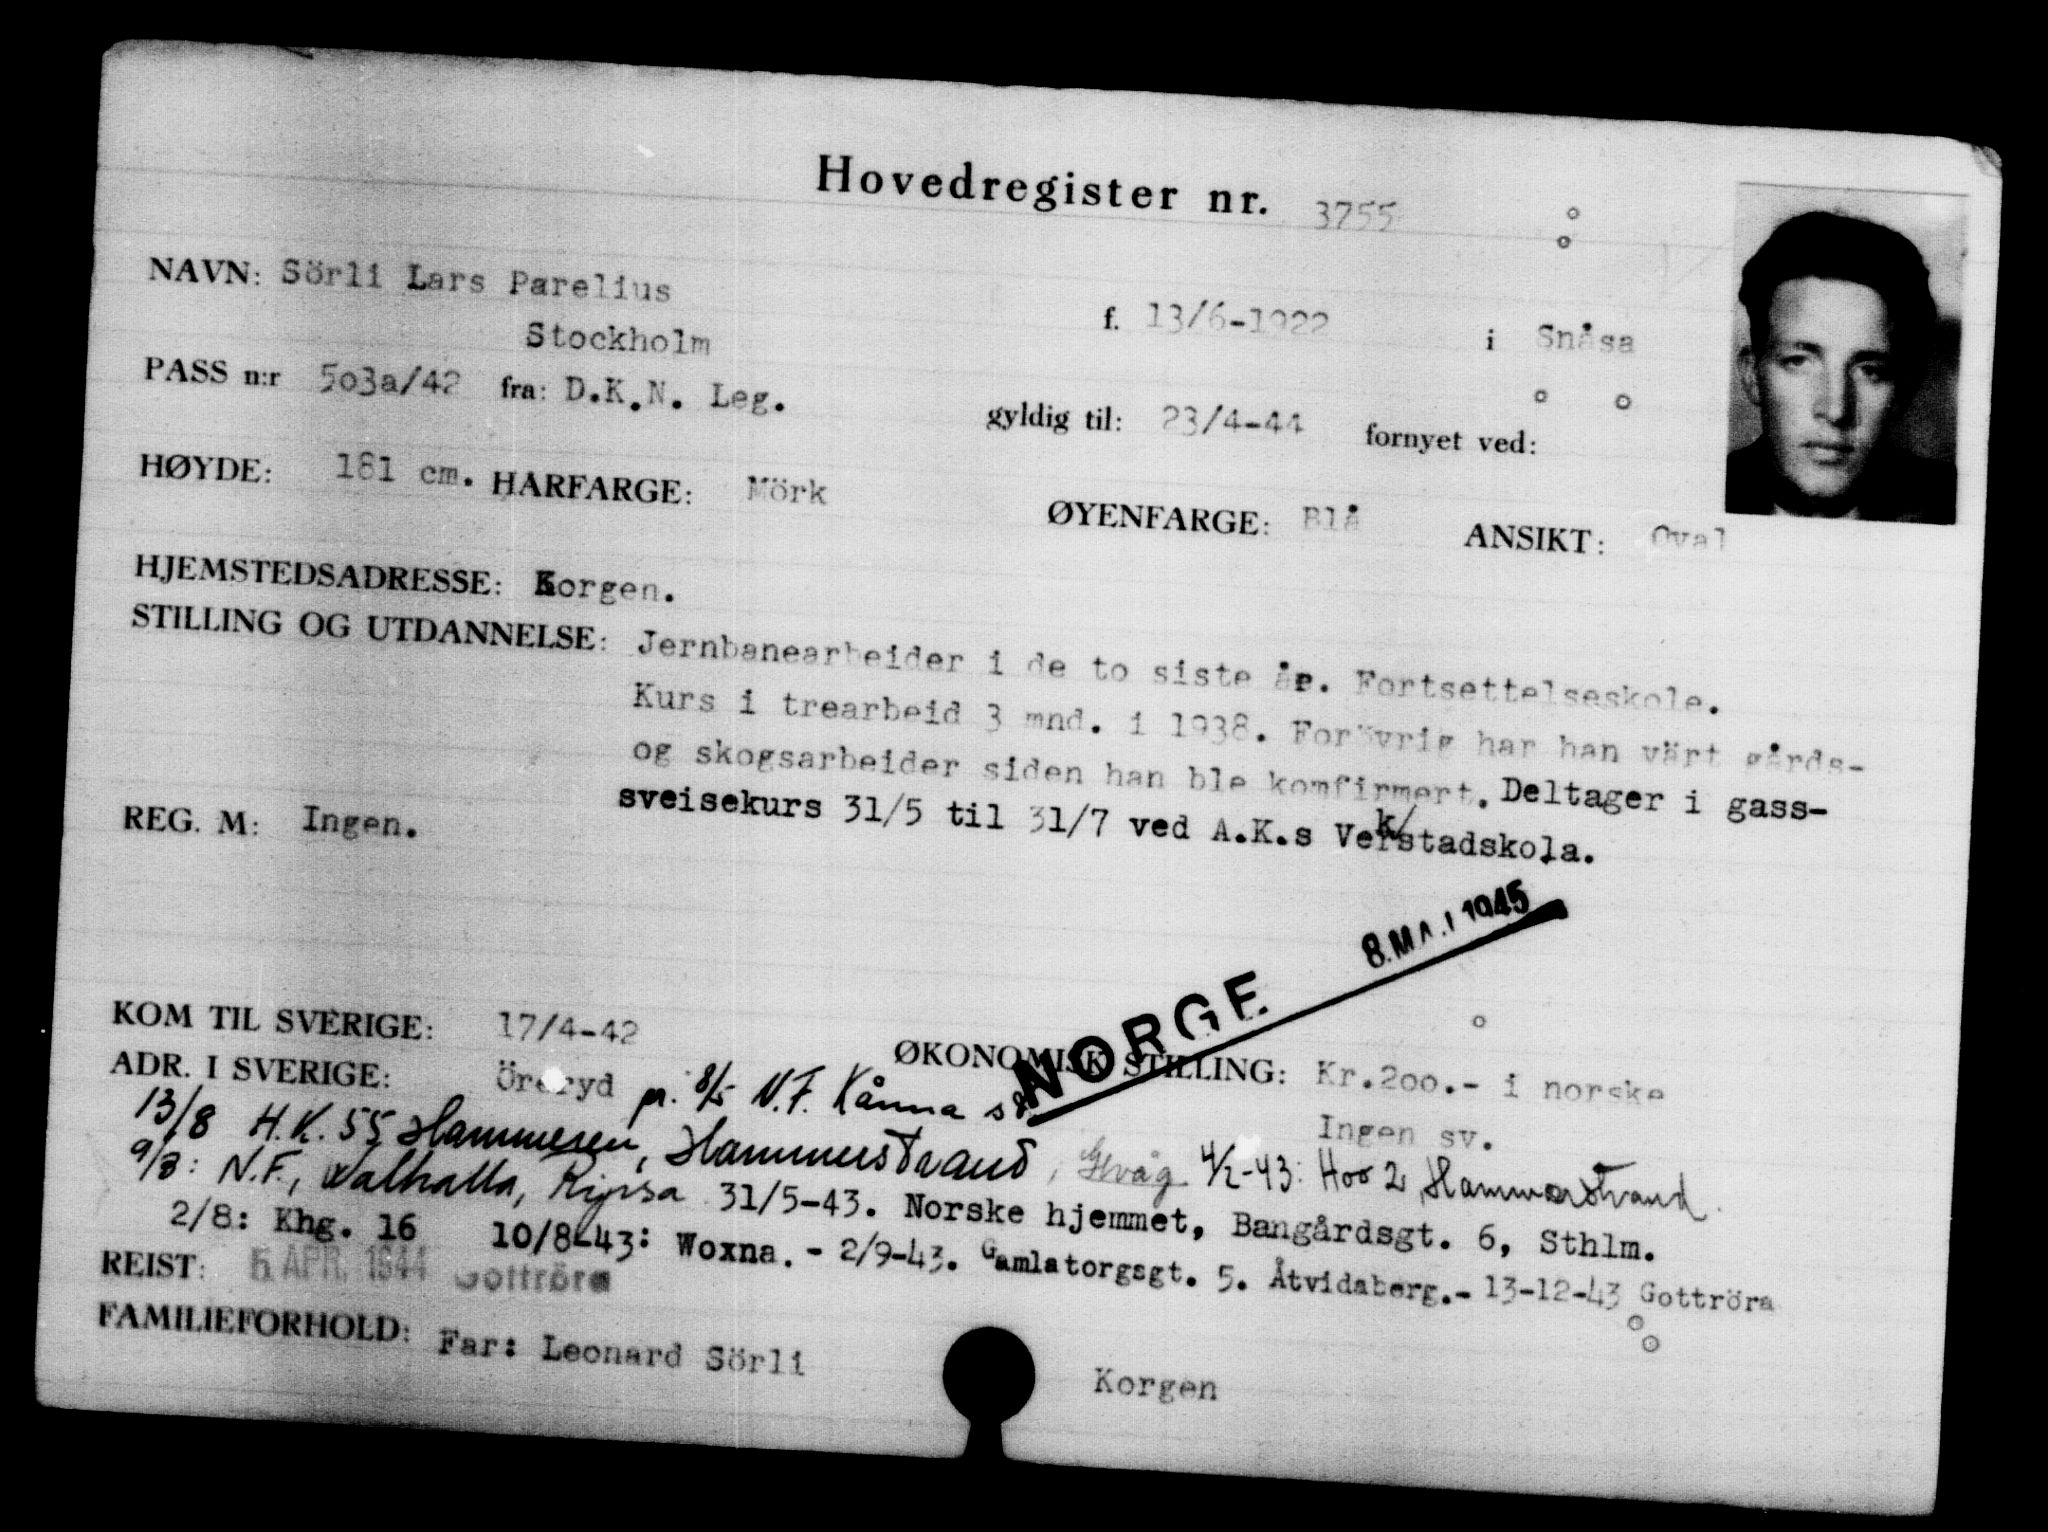 Hovedregister nr. 3755
NAVN: Sörli Lars Parelius f. 13/6-1922 i Snåsa
Stockholm
PASS n:r 503a/42 fra: D.K.N. Leg. gyldig til: 23/4-44 fornyet ved:
HØYDE: 181 cm. HARFARGE: Mörk ØYENFARGE: Blå ANSIKT: Oval
HJEMSTEDSADRESSE: Korgen.
STILLING OG UTDANNELSE: Jernbanearbeider i de to siste år. Fortsettelseskole.
Kurs i trearbeid 3 mnd. i 1938. Forövrig har han värt gårds-
og skogsarbeider siden han ble komfirmert. Deltager i gass-
sveisekurs 31/5 til 31/7 ved A.K.s Verkstadskola.
REG. M: Ingen.
8. MAJ 1945
NORGE
KOM TIL SVERIGE: 17/4-42 ØKONOMISK STILLING: Kr.200.- i norske
Ingen sv.
ADR. I SVERIGE: Öreryd pr. 8/5 N.F. Kånna
13/8 H.K. 55 Hammeren, Hammerstrand, Gevåg 4/2-43: Hoo 2, Hammerstrand.
9/3: N.F., Valhalla, Ripsa 31/5-43. Norske hjemmet, Bangårdsgt. 6, Sthlm.
2/8: Khg. 16 10/8-43: Woxna. - 2/9-43. Gamlatorgsgt. 5. Åtvidaberg.- 13-12-43 Gottröra
REIST: 5 APR. 1944 Gottröra
FAMILIEFORHOLD: Far: Leonard Sörli Korgen